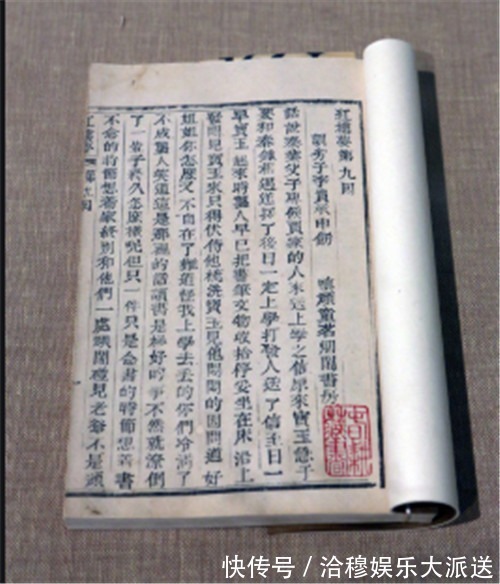 紅樓夢第九回
訓劣子李貴承申飭　嗔頑童茗烟閙書房
話說秦業父子專候賈家的人來送上學之信原來寶玉急于
要和秦鐘相遇遂擇了後日一定上學打發人送了信至日一
早寶玉起來時襲人早已把書筆文物收拾停妥坐在床沿上
發悶見寶玉來只得伏侍他梳洗寶玉見他悶悶的因問道好
姐姐你怎麼又不自在了難道怪我上學去丟的你們冷淸了
不成襲人笑道這是那裡的話讀書是極好的事不然就潦倒
了一輩子終久怎麼樣呢但只一件只是念書的時節想着書
不念的時節想着家終別和他們一處頑閙碰見老爺不是頑
紅樓夢 回
快传号／洽穆娱乐大派送